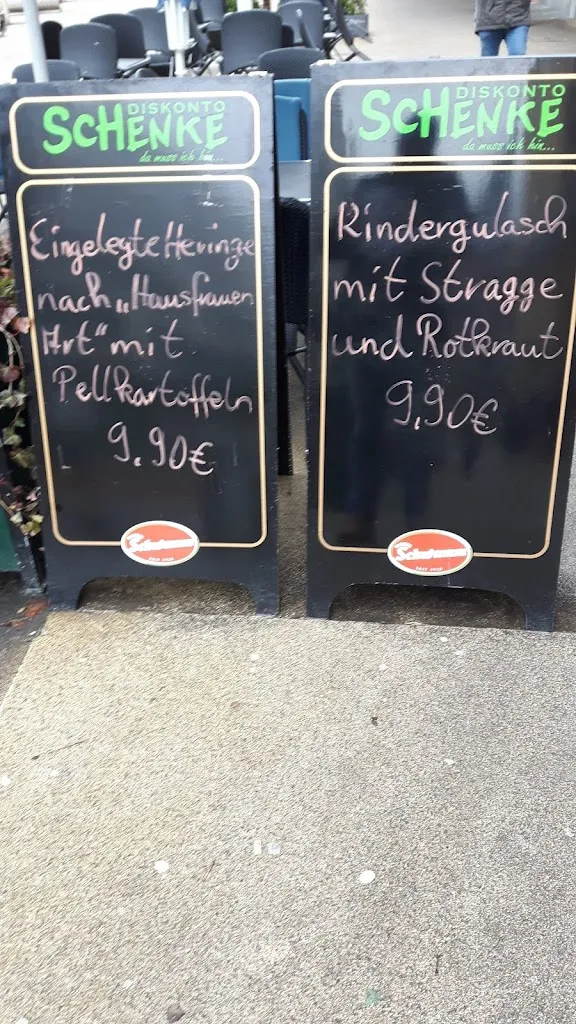 DISKONTO
SCHENKE
da muss ich hin...
Eingelegte Heringe
nach „Hausfrauen
Art" mit
Pellkartoffeln
9.90€
DISKONTO
SCHENKE
da muss ich hin...
Rindergulasch
mit Stragge
und Rotkraut
9,90€